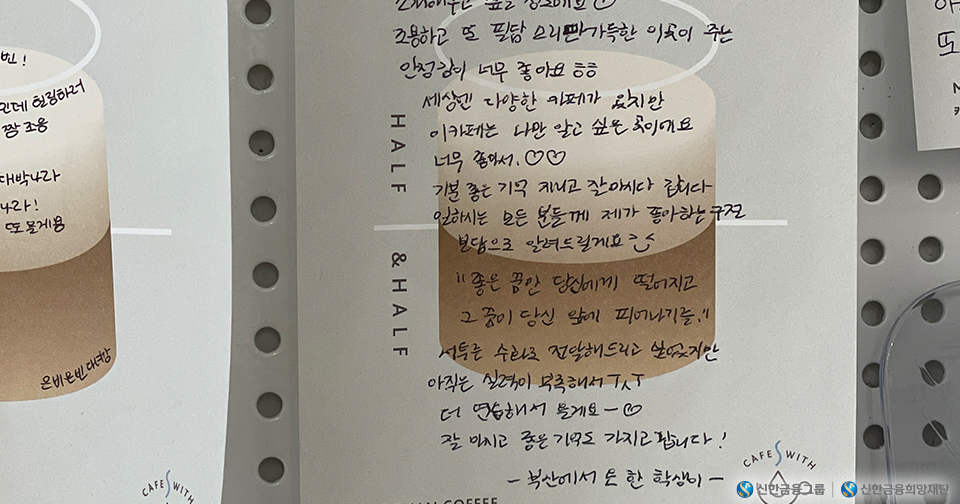 빈!
인데 힐링하러
짱 조용
대박나라
나라!
또 올게용
은비은빈 다녀감
CAFE SWITH
조용하고 또 필담 소리만 가득한 이곳이 주는
안정감이 너무 좋아요 ㅎㅎ
세상엔 다양한 카페가 있지만
이 카페는 나만 알고 싶은 곳이에요
너무 좋아서. ♡♡
기분 좋은 기억 가지고 잘 마시다 갑니다
일하시는 모든 분들께 제가 좋아하는 구절
보답으로 알려드릴게요
"좋은 꿈만 당신에게 떨어지고
그 꿈이 당신 앞에 피어나기를."
서투른 수화로 전달해드리고 싶었지만
아직은 실력이 부족해서 ㅜㅅㅜ
더 연습해서 올게요 ー ♡
잘 마시고 좋은 기억도 가지고 갑니다!
- 부산에서 온 한 학생이 -
HALF & HALF
CAFE SWITH
COFFEE
또
신한금융그룹
신한금융희망재단